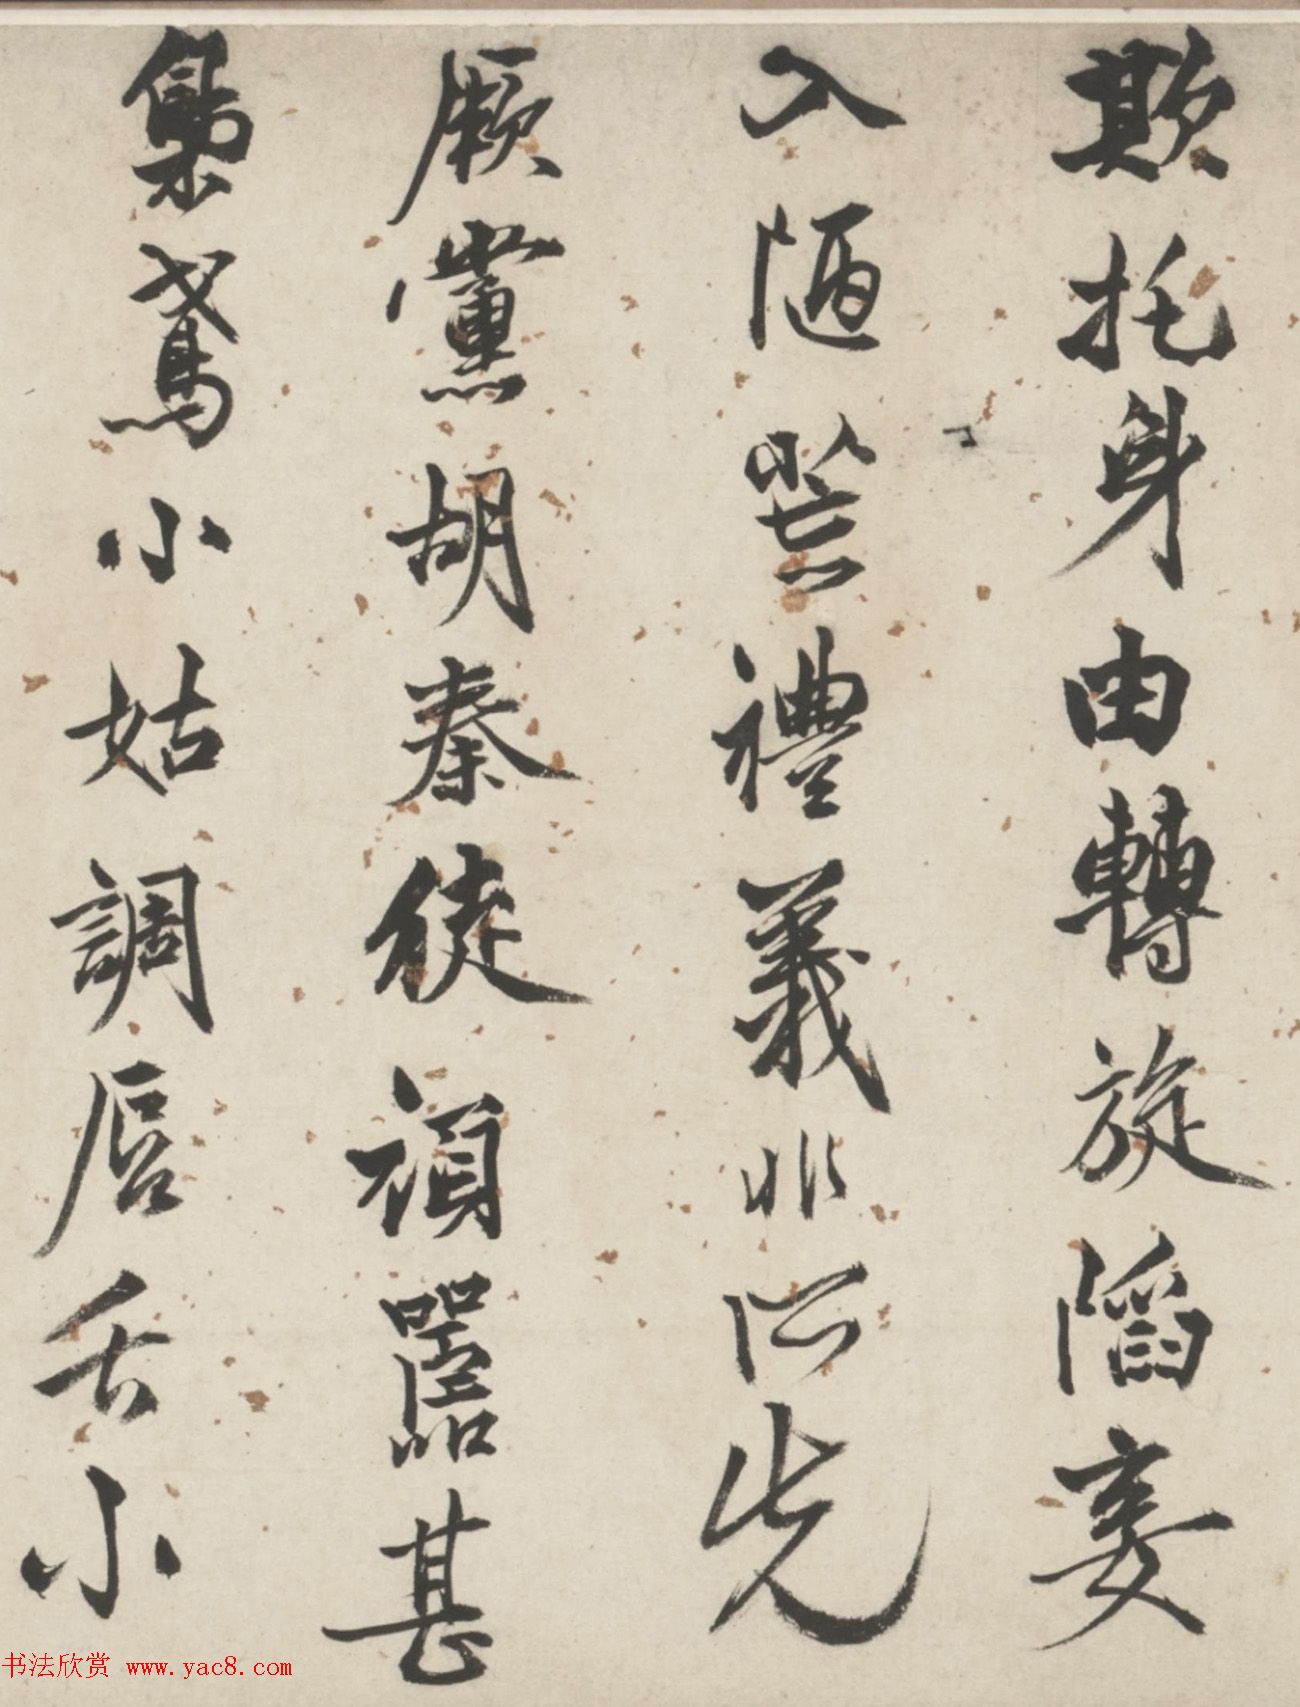 欺托身由轉旋陷妾
入陋芒禮義非所先
厥黨胡秦徒禎嚚甚
梟鳶小姑調唇舌小
书法欣赏 www.yac8.com